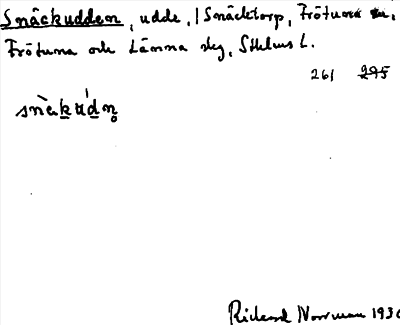 Snäckudden, udde, / Snäcktorp, Frötuna sn,
Frötuna och Länna skg, Sthlms L.
261 295
snä̀kúdn̥
Richard Norrman 1930